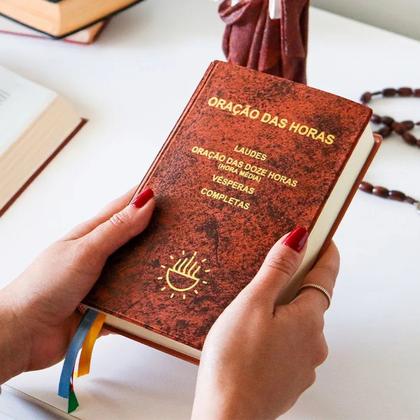 ORAÇÃO DAS HORAS
LAUDES
ORAÇÃO DAS DOZE HORAS
(HORA MÉDIA)
VÉSPERAS
COMPLETAS